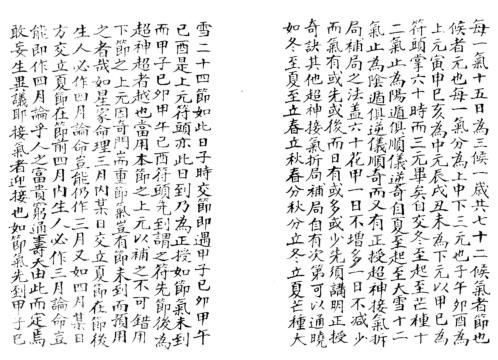 每一氣十五日為三候一歲共七十二候氣者節也
候者元也每一氣分為上中下三元也子午卯酉為
上元寅申巳亥為中元辰戌丑未為下元以甲己為
符頭掌六十時而三元畢矣自交冬至起至芒種十
二氣止為陽遁俱順儀逆奇自夏至起至大雪十二
氣止為陰遁俱逆儀順奇而又有正授超神接氣拆
局補局之法盖六十花甲一日不增多一日不減少
而氣有或先或後而日有或多或少先須講明正授
奇訣其他超神接氣折局補局自有次第可以通曉
如冬至夏至立春立秋春分秋分立冬立夏芒種大
雪二十四節如此日子時交節即遇甲子己卯甲午
己酉是上元符頭亦此日到乃為正授如節氣未到
而甲子己卯甲午己酉符頭先到謂之符先節後為
超神超者越也當用本節之上元以補之不可錯用
下節之上元因奇門耑重節氣豈有節未到而預用
之者哉如星家命理三月內某日交立夏節在節後
生人必作四月論命豈能仍作三月又如四月某日
方交立夏節在節前四月內生人必作三月論命豈
能即作四月論乎人之富貴窮通壽夭由此而定焉
敢妄生異議耶接氣者迎接也如節氣先到甲子己